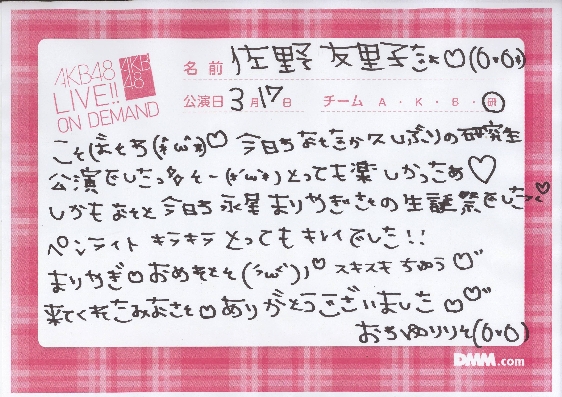 AKB48
LIVE!!
ON DEMAND
AKB
48
名前 佐野友里子さん♡(õ·õ)
公演日 3月17日 チーム A・K・B・研
こそばそち(*´ω`*)♡ 今日ちなそさか久しぶりの研究生
公演でしたっ(*´ω`*)とっても楽しかったぁ♡
しかもなそと今日ち永尾まりやぎさその生誕祭でした♡
ペンライト キラキラ とってもキレイでした!!
まりやぎ♡おめそとそ(´ω`)♡スキスキちゅう♡
来てくれたみなさそ♡ありがとうございました♡♡
おちゆりりそ(õ·õ)
DMM.com